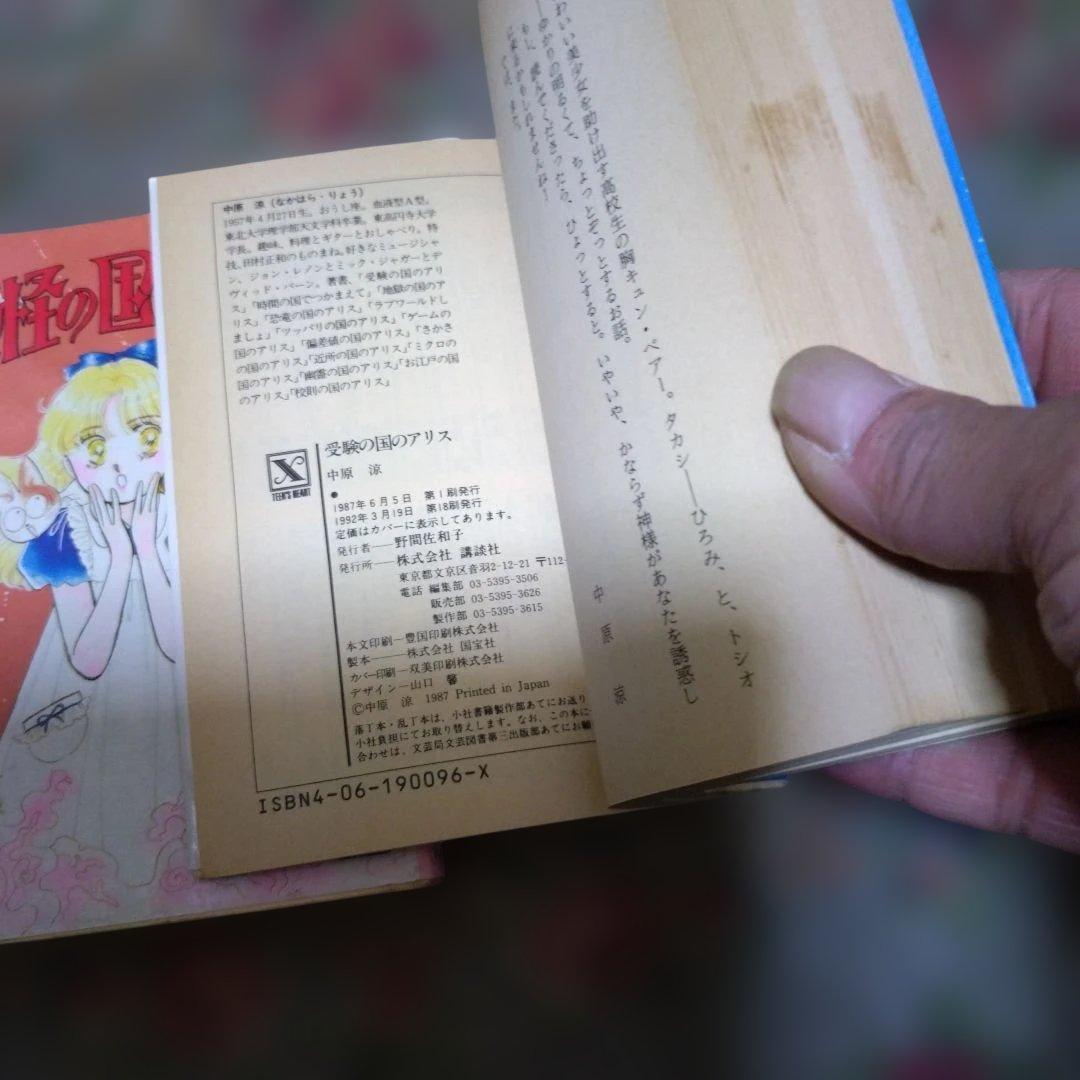 怪の国
中原 涼(なかはら・りょう)
1957年4月27日生。おうし座。血液型A型。
東北大学理学部天文学科卒業。東高円寺大学
学長。趣味、料理とギターとおしゃべり。特
技、田村正和のものまね。好きなミュージシャ
ン、ジョン・レノンとミック・ジャガーとデ
ヴィッド・バーン。著書、「受験の国のアリ
ス」「時間の国でつかまえて」「地獄の国のア
リス」「恐竜の国のアリス」「ラブワールドし
ましょ」「ツッパリの国のアリス」「ゲームの
国のアリス」「偏差値の国のアリス」「さかさ
の国のアリス」「近所の国のアリス」「ミクロの
国のアリス」「幽霊の国のアリス」「お江戸の国
のアリス」「校則の国のアリス」
X
TEEN'S HEART
受験の国のアリス
中原 涼
●
1987年6月5日 第1刷発行
1992年3月19日 第18刷発行
定価はカバーに表示してあります。
発行者——野間佐和子
発行所——株式会社 講談社
東京都文京区音羽2-12-21 〒112-
電話 編集部 03-5395-3506
販売部 03-5395-3626
製作部 03-5395-3615
本文印刷—豊国印刷株式会社
製本——株式会社 国宝社
カバー印刷—双美印刷株式会社
デザイン—山口 馨
©中原 涼 1987 Printed in Japan
落丁本・乱丁本は、小社書籍製作部あてにお送り
小社負担にてお取り替えします。なお、この本に
合わせは、文芸局文芸図書第三出版部あてにお願
ISBN4-06-190096-X
ひろみ、と、トシオ
わいい美少女を助け出す高校生の胸キュン・ペアー。タカシ——
ゆかりの明るくて、ちょっとぞっとするお話。
読んでくださったら、ひょっとすると。いやいや、かならず神様があなたを誘惑し
に来るかもしれませんね!
では、また。
中原 涼